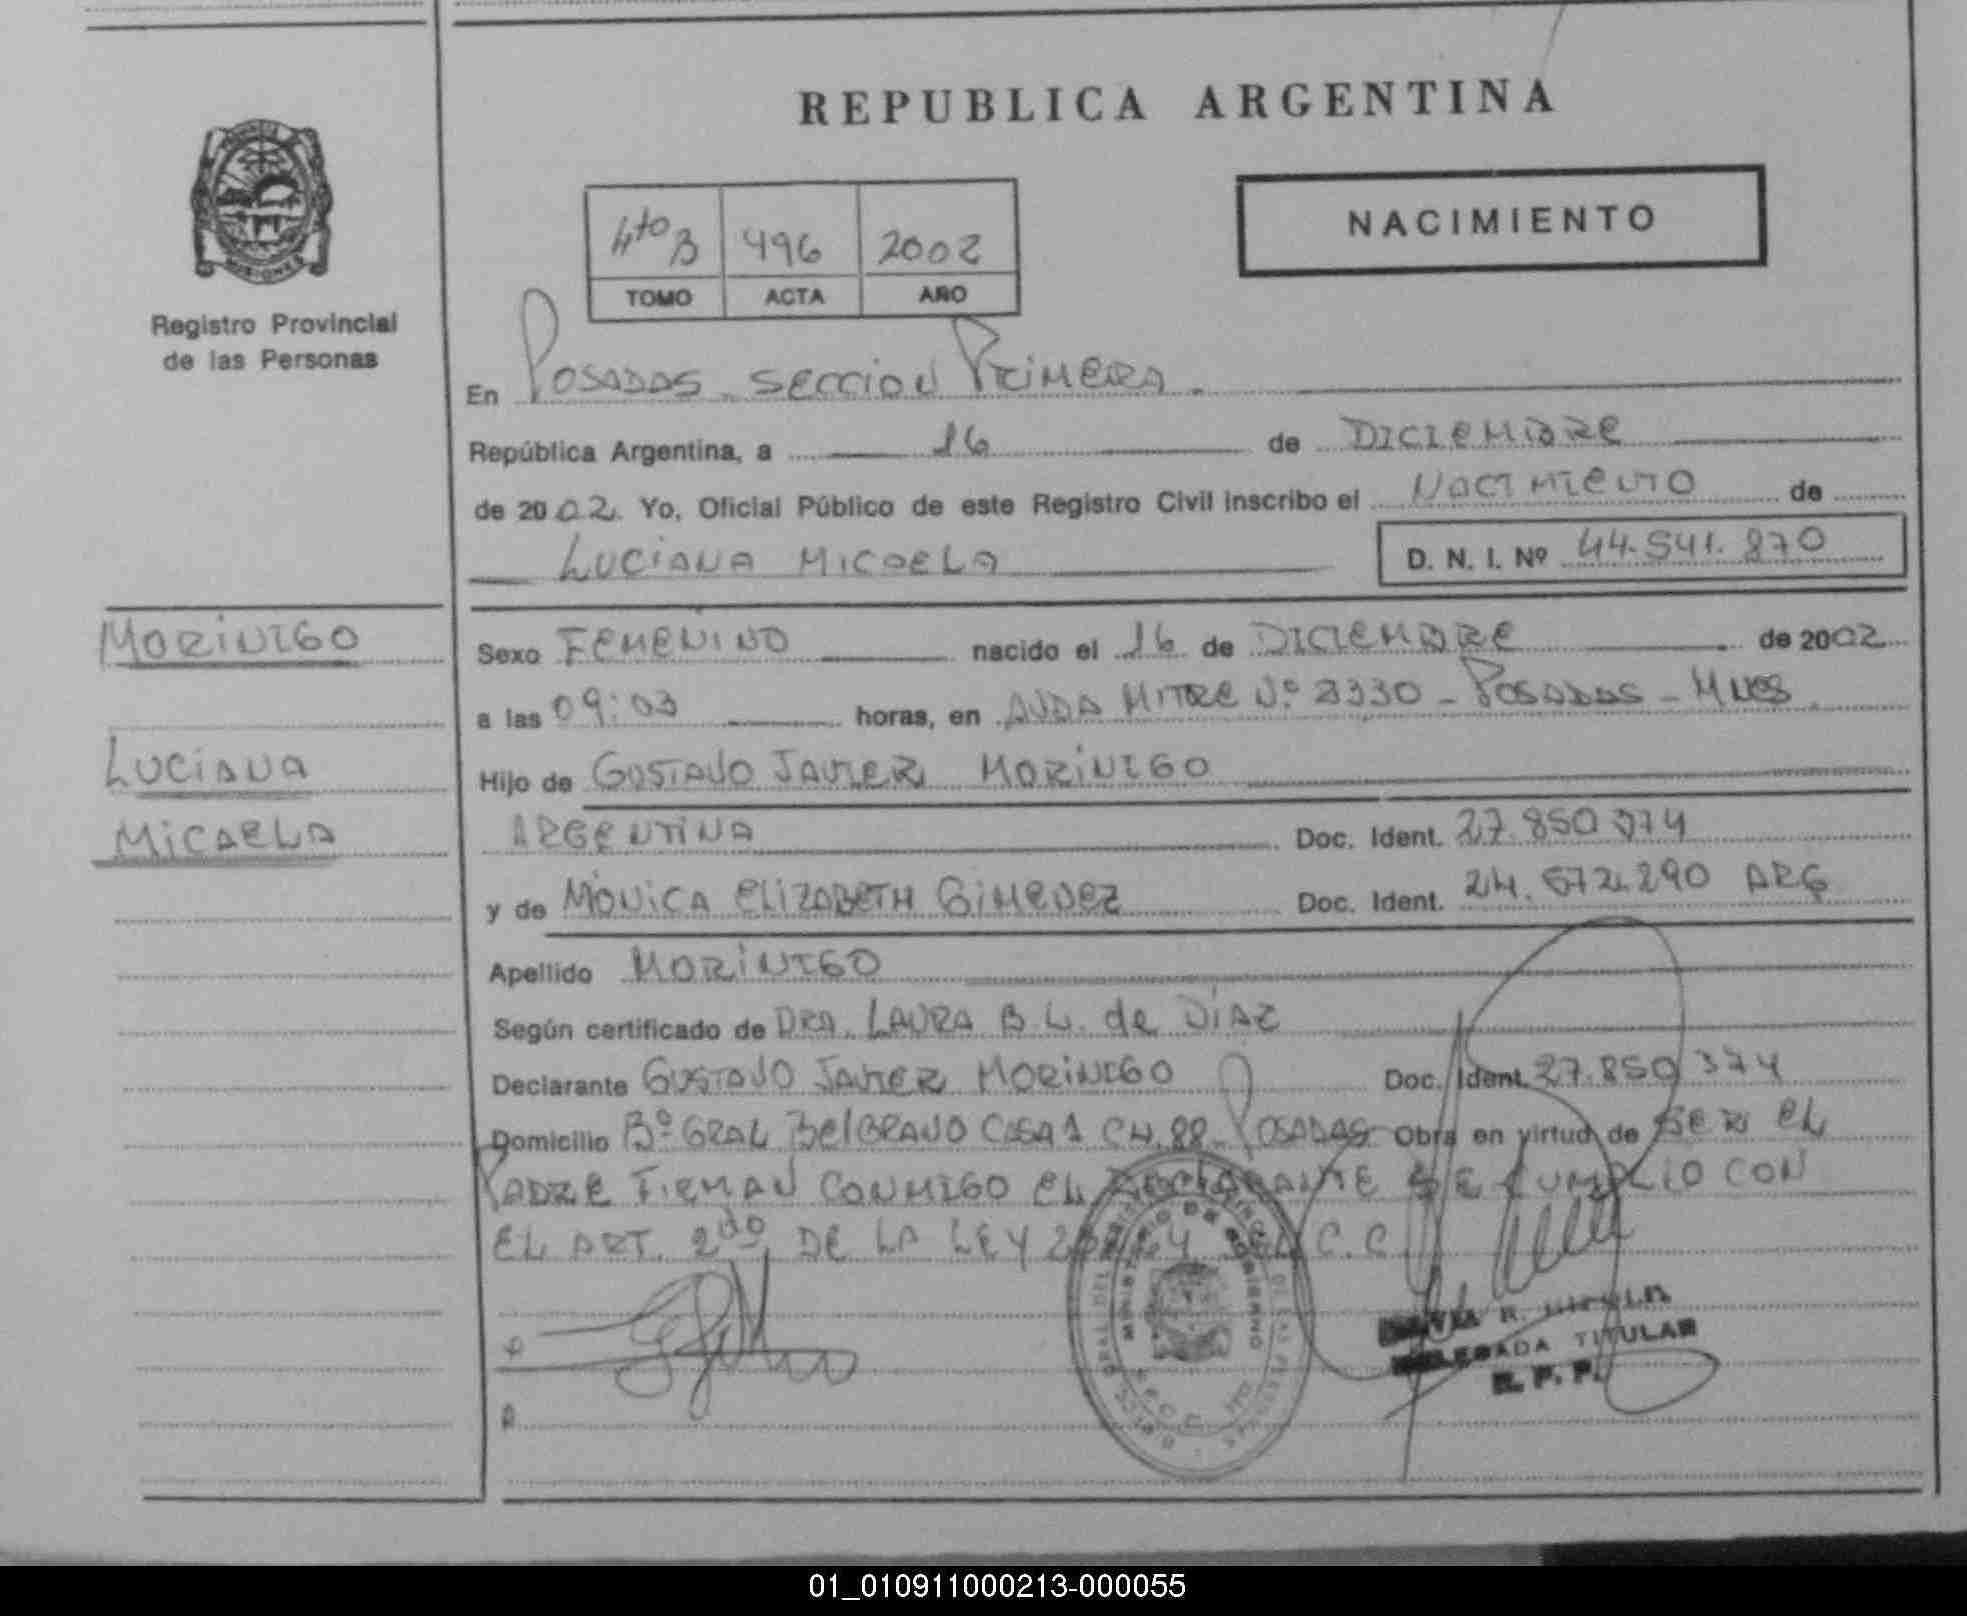 REPUBLICA ARGENTINA
MISIONES
Registro Provincial
de las Personas
4to B 496 2002
TOMO ACTA AÑO
NACIMIENTO
En POSADAS - SECCION PRIMERA -
República Argentina, a 16 de DICIEMBRE
de 2002. Yo, Oficial Público de este Registro Civil inscribo el NACIMIENTO de
LUCIANA MICAELA D. N. I. Nº 44.541.870
MORINIGO
LUCIANA
MICAELA
Sexo FEMENINO nacido el 16 de DICIEMBRE de 2002
a las 09:03 horas, en AVDA MITRE Nº 2330 - POSADAS - MNES
Hijo de GUSTAVO JAVIER MORINIGO
ARGENTINA Doc. Ident. 27.850.374
y de MONICA ELIZABETH GIMENEZ Doc. Ident. 24.572.290 ARG
Apellido MORINIGO
Según certificado de DRA. LAURA B L. de DIAZ
Declarante GUSTAVO JAVIER MORINIGO Doc. Ident. 27.850 374
Domicilio Bº GRAL BELGRANO CASA 1 CH. 88 - POSADAS Obra en virtud de SER EL
PADRE FIRMAN CONMIGO EL DECLARANTE SE CUMPLIO CON
EL ART. 2do DE LA LEY C.C
MINISTERIO DE GOBIERNO
R.
DELEGADA TITULAR
R. P. P.
01_010911000213-000055